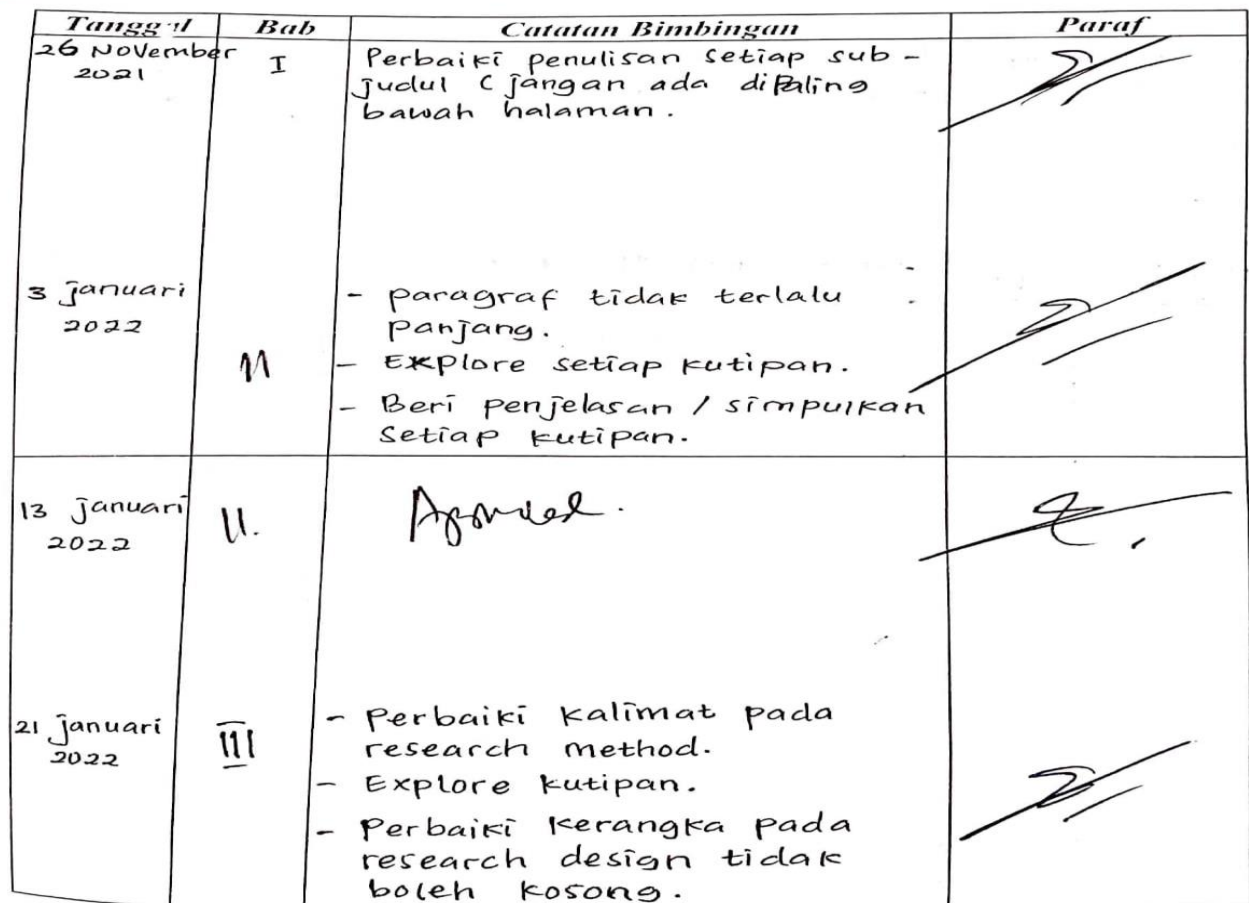 Tanggal Bab Catatan Bimbingan Paraf
26 November I Perbaiki penulisan setiap sub-
2021 judul ( jangan ada dipaling
bawah halaman.
3 januari - paragraf tidak terlalu
2022 panjang.
II - Explore setiap kutipan.
- Beri penjelasan / simpulkan
setiap kutipan.
13 januari II. Approved.
2022
21 januari III - Perbaiki kalimat pada
2022 research method.
- Explore kutipan.
- Perbaiki kerangka pada
research design tidak
boleh kosong.